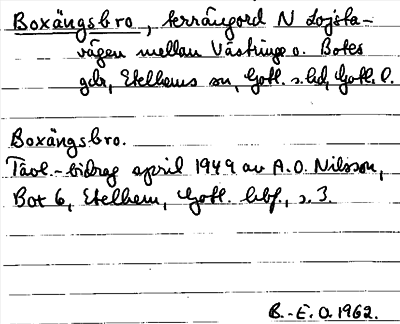 Boxängsbro, terrängord N Lojsta-
vägen mellan Västringe o. Botes
gdr, Etelhems sn, Gotl. s. hd, Gotl. l.
Boxängsbro.
Tävl.-bidrag april 1949 av A.O. Nilsson,
Bot 6, Etelhem, Gotl. hbf., s. 3.
B.-E. O. 1962.